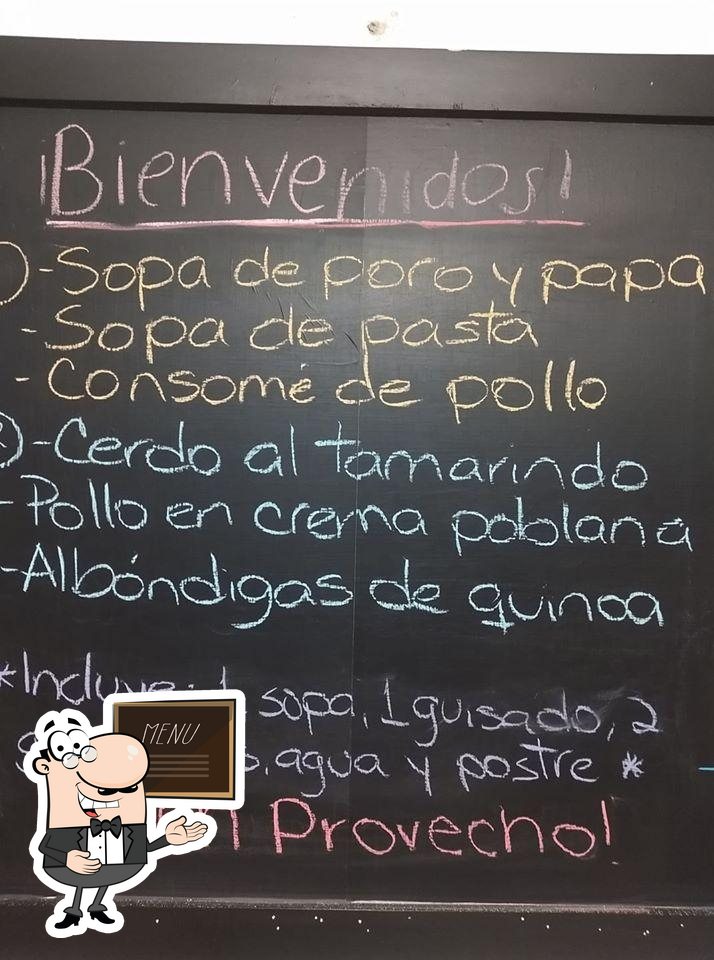 ¡Bienvenidos!
)-Sopa de poro y papa
-Sopa de pasta
-Consomé de pollo
)-Cerdo al tamarindo
-Pollo en crema poblana
-Albóndigas de quinoa
*Incluye: 1 sopa, 1 guisado, 2
agua y postre *
Provecho!
MENU